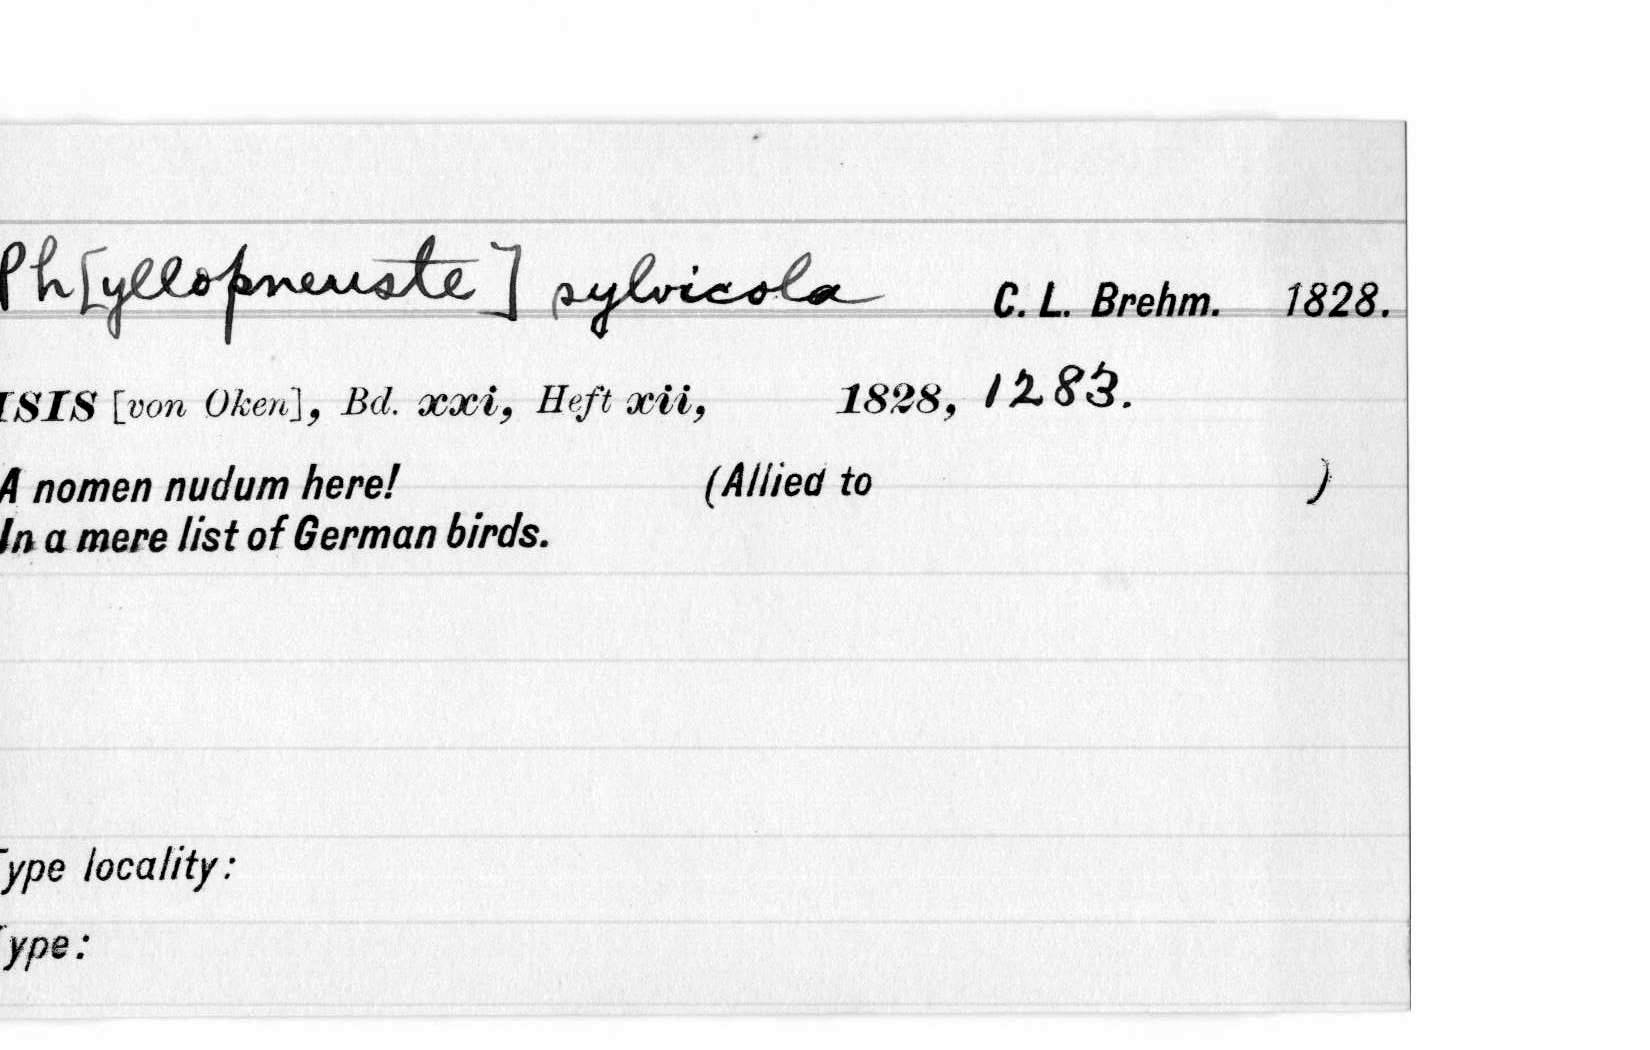 Ph[yllopneuste] sylvicola C. L. Brehm. 1828.
ISIS [von Oken], Bd. xxi, Heft xii, 1828, 1283.
A nomen nudum here! (Allied to )
In a mere list of German birds.
Type locality:
Type: